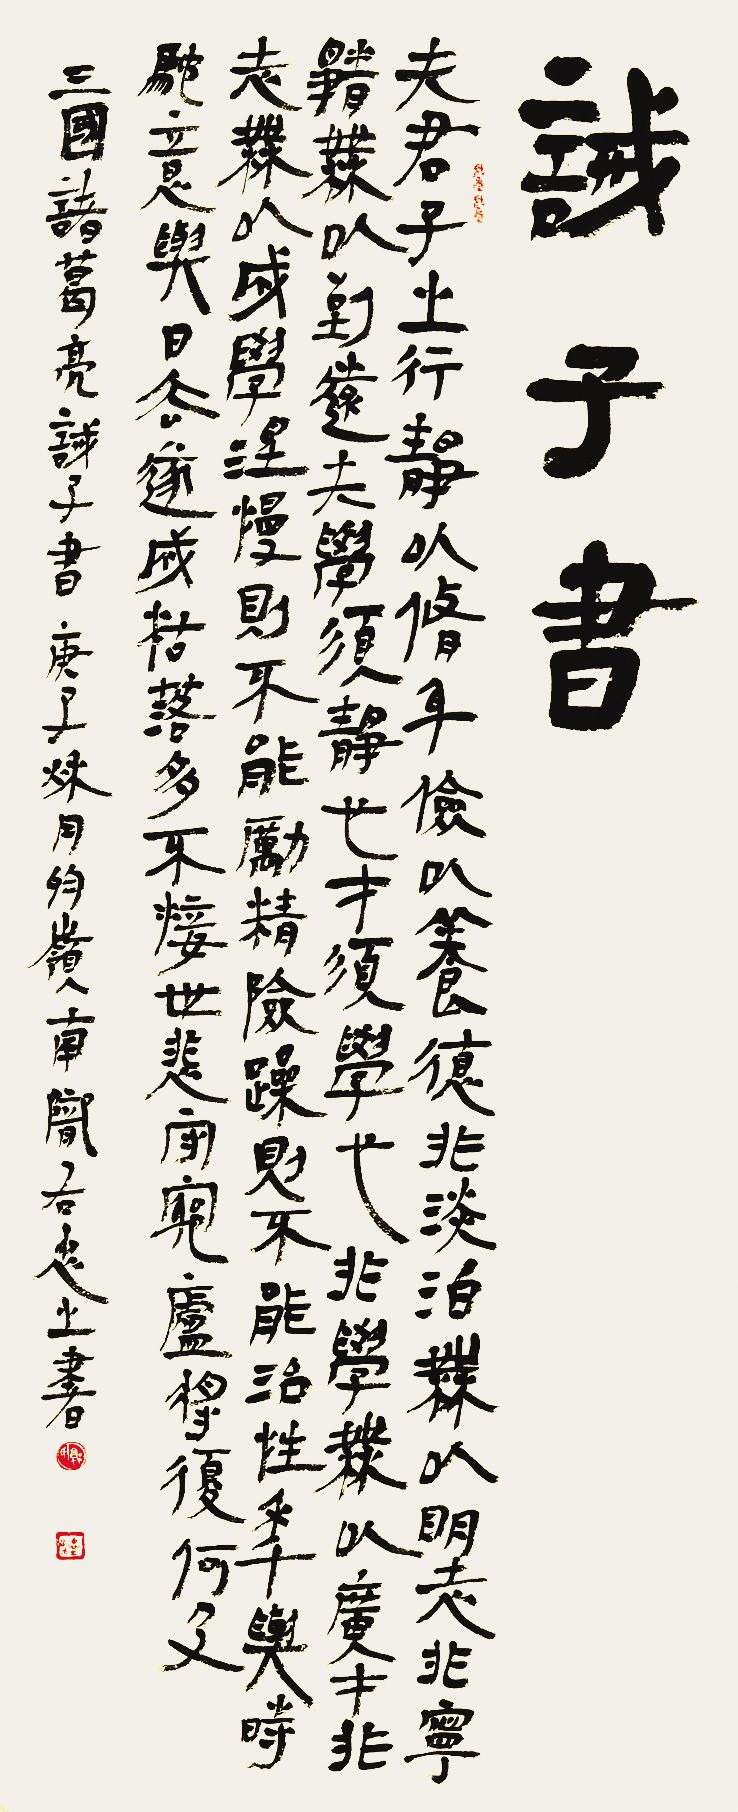 誡子書
夫君子之行靜以脩身儉以養德非淡泊無以明志非寧
靜無以致遠夫學須靜也才須學也非學無以廣才非
志無以成學淫慢則不能勵精險躁則不能治性年與時
馳意與日去遂成枯落多不接世悲守窮廬將復何及
三國諸葛亮誡子書庚子秋月於嶺南
右忠之書